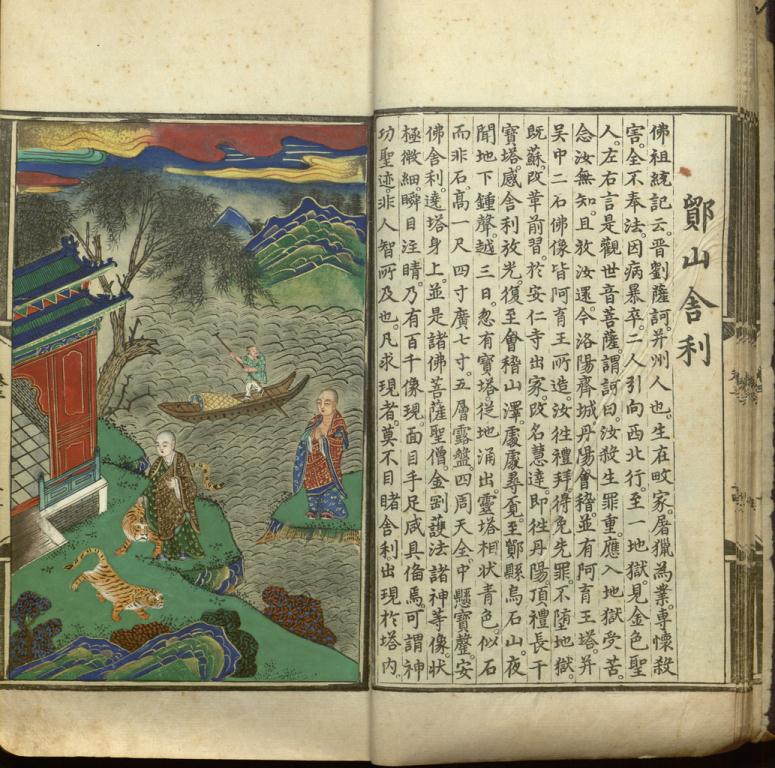 鄮山舍利
佛祖統記云。晋劉薩訶。并州人也。生在畋家。屠獵為業。專懷殺
害。全不奉法。因病暴卒。二人引向西北行。至一地獄。見金色聖
人。左右言是觀世音菩薩。謂訶曰。汝殺生罪重。應入地獄受苦。
念汝無知。且放汝還。今洛陽齊城丹陽會稽。並有阿育王塔。并
吳中二石佛像。皆阿育王所造。汝往禮拜。得免先罪。不墮地獄。
既蘇。改革前習。於安仁寺出家。改名慧達。即往丹陽頂禮長干
寶塔。感舍利放光。復至會稽山澤。處處尋覓。至鄮縣烏石山。夜
聞地下鍾聲。越三日。忽有寶塔。從地涌出。靈塔相狀青色。似石
而非石。高一尺四寸。廣七寸。五層露盤。四周天全。中懸寶磬。安
佛舍利。遶塔身上。並是諸佛菩薩聖僧金剛護法諸神等像。狀
極微細。瞬目注睛。乃有百千像現。面目手足咸具備焉。可謂神
功聖迹。非人智所及也。凡求現者。莫不目睹舍利。出現於塔內